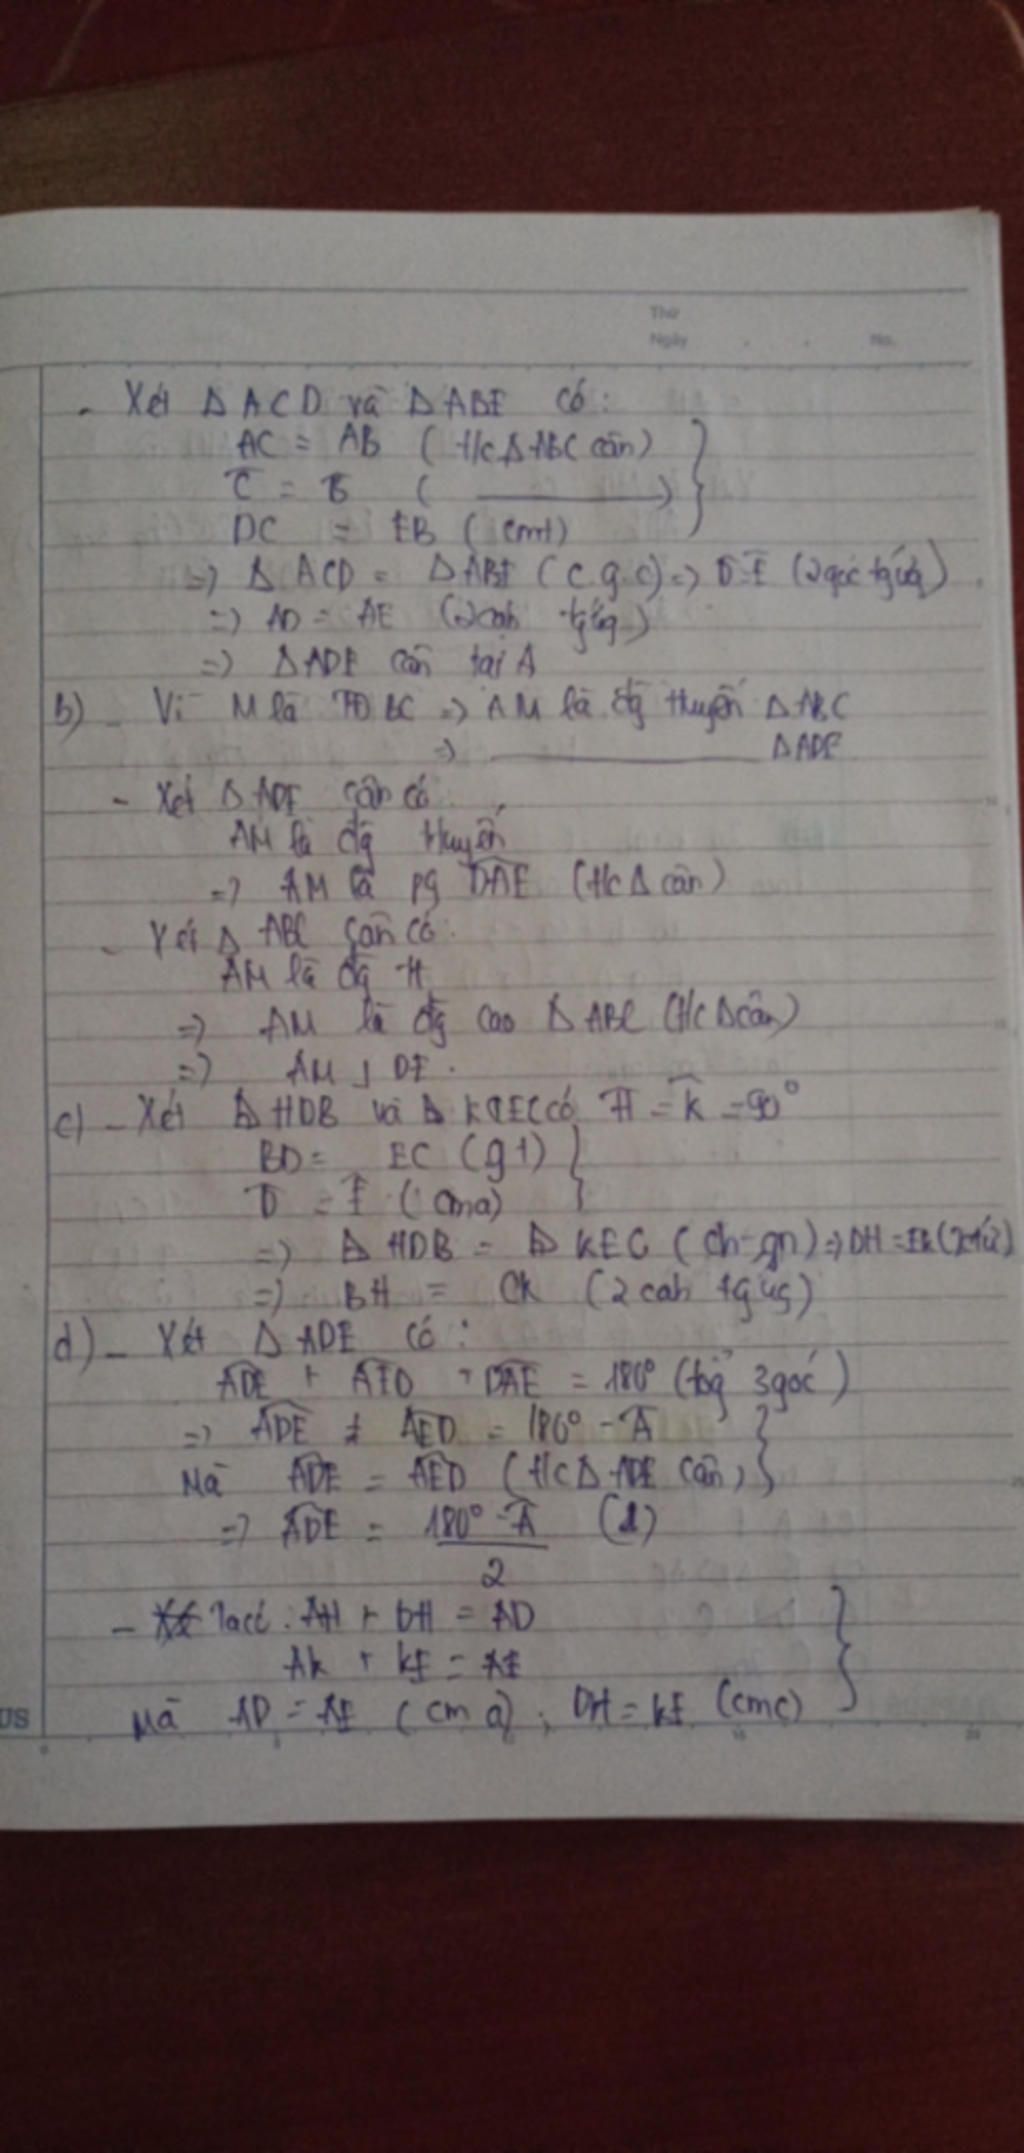 Thứ
Ngày No.
- Xét Δ ACD và Δ ABE có:
AC = AB ( t/c Δ ABC cân)
C = B ( ———— )
DC = EB ( cmt)
=> Δ ACD = Δ ABE ( c.g.c) => D=E (2 góc tg ứg)
=> AD = AE (2 cah tg ứg)
=> Δ ADE cân tại A
b) - Vì M là TĐ BC => AM là đg tuyến Δ ABC
=> ———— Δ ADE
- Xét Δ ADE cân có:
AM là đg tuyến
=> AM là pg DAE (t/c Δ cân)
- Xét Δ ABC cân có:
AM là đg tt
=> AM là đg cao Δ ABC (t/c Δ cân)
=> AM ⊥ DE.
c) - Xét Δ HDB và Δ KEC có H = K = 90°
BD = EC (gt)
D = E ( cma)
=> Δ HDB = Δ KEC ( ch-gn) => DH = EK
=> BH = CK (2 cah tg ưg)
d) - Xét Δ ADE có :
ADE + AED + DAE = 180° (tổg 3 góc )
=> ADE + AED = 180° - A
Mà ADE = AED (t/c Δ ADE cân)
=> ADE = 180° - A (1)
2
- Ta có: AH + DH = AD
AK + KE = AE
Mà AD = AE ( cm a) ; DH = KE (cmc)